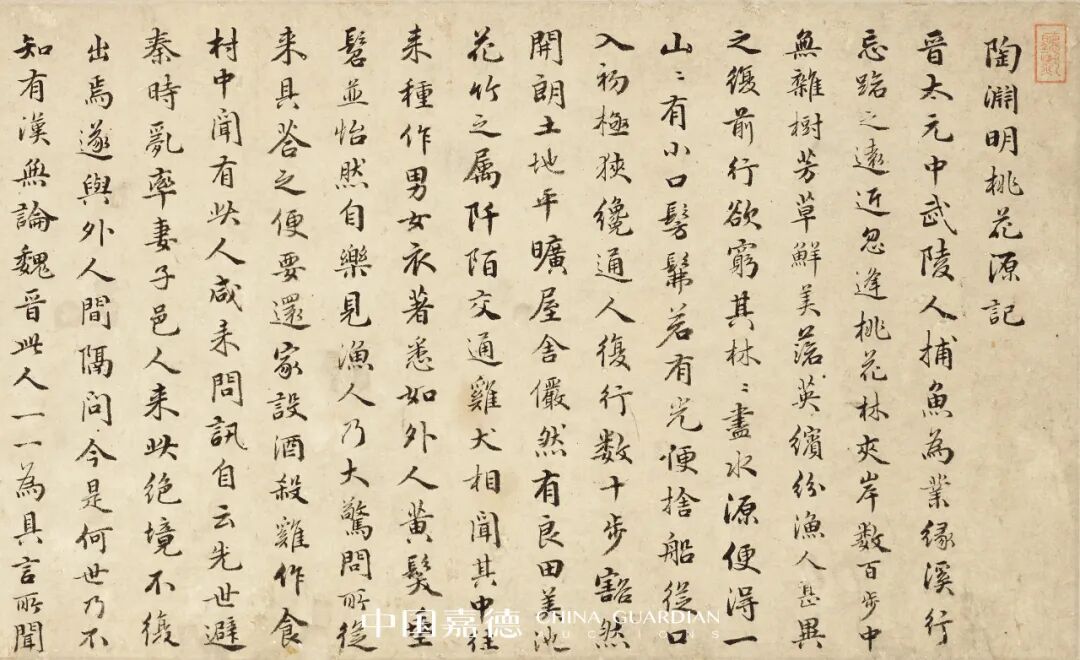 陶淵明桃花源記
晉太元中武陵人捕魚為業緣溪行
忘路之遠近忽逢桃花林夾岸數百步中
無雜樹芳草鮮美落英繽紛漁人甚異
之復前行欲窮其林〻盡水源便得一
山〻有小口髣髴若有光便捨船從口
入初極狹纔通人復行數十步豁然
開朗土地平曠屋舍儼然有良田美池
花竹之属阡陌交通雞犬相聞其中往
来種作男女衣著悉如外人黃髮垂
髫並怡然自樂見漁人乃大驚問所從
来具答之便要還家設酒殺雞作食
村中聞有此人咸来問訊自云先世避
秦時亂率妻子邑人来此絕境不復
出焉遂與外人間隔問今是何世乃不
知有漢無論魏晉此人一一為具言所聞
中国嘉德 CHINA GUARDIAN
AUCTIONS